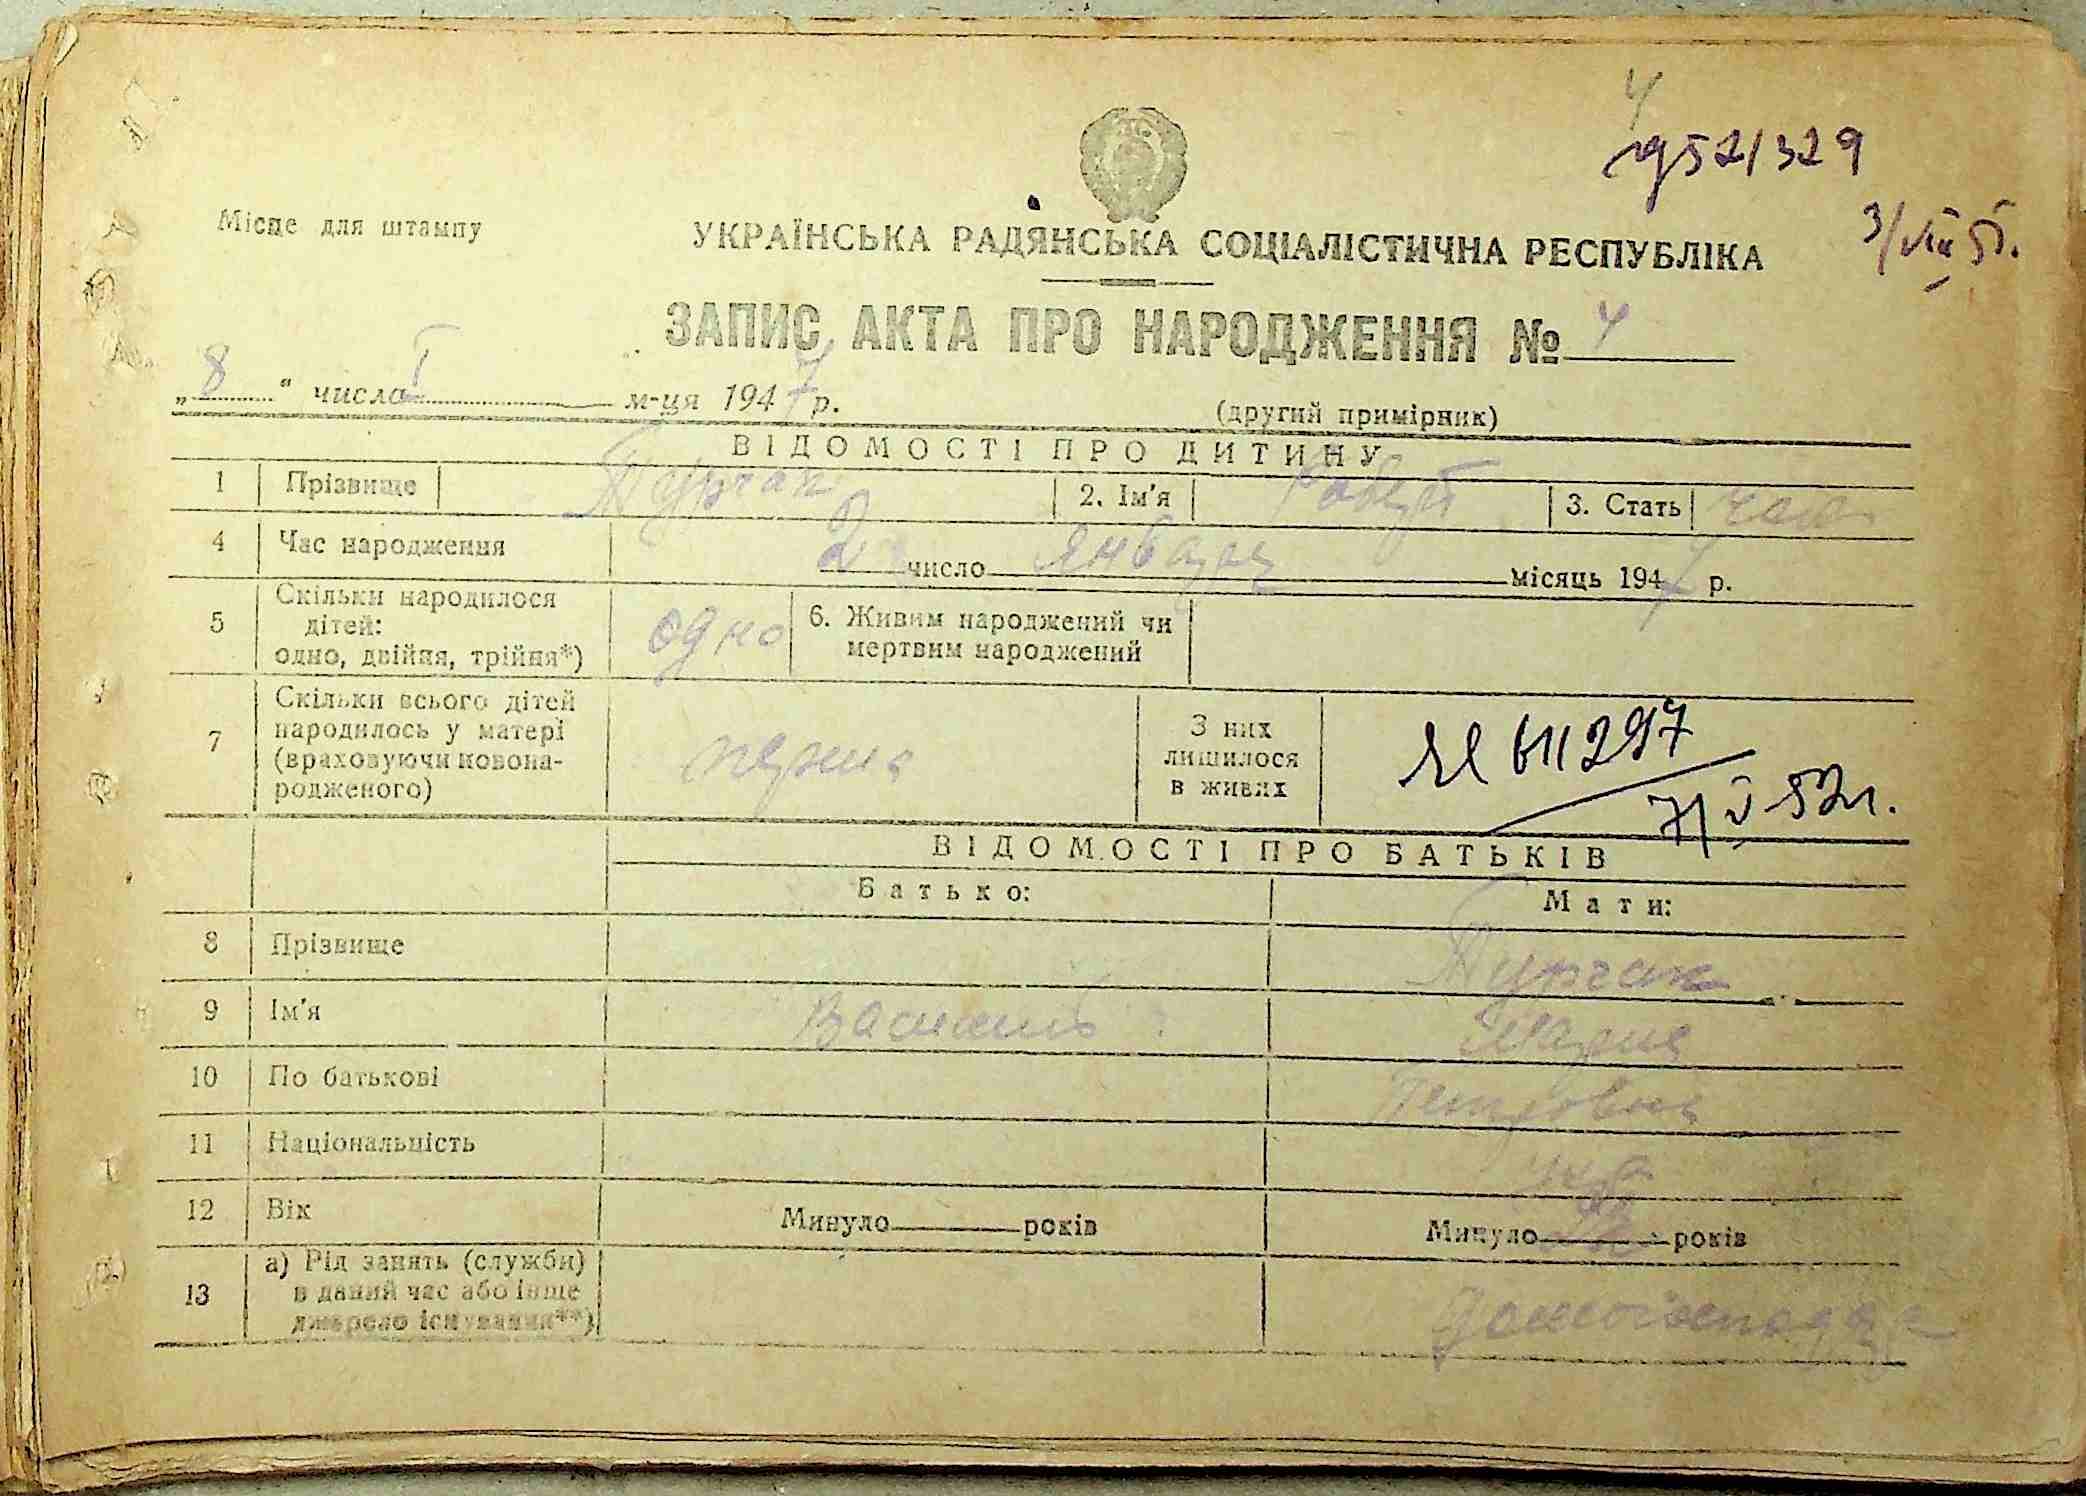 4
952/329
3/VIII 55.
Місце для штампу
УКРАЇНСЬКА РАДЯНСЬКА СОЦІАЛІСТИЧНА РЕСПУБЛІКА
ЗАПИС АКТА ПРО НАРОДЖЕННЯ № 4
„8“ числа I м-ця 1947 р.
(другий примірник)
ВІДОМОСТІ ПРО ДИТИНУ
1 Прізвище Турчак 2. Ім'я 3. Стать чол
4 Час народження 2 число января місяць 1947 р.
5 Скільки народилося дітей: одно, двійня, трійня*) одно 6. Живим народжений чи мертвим народжений
7 Скільки всього дітей народилось у матері (враховуючи новонародженого) З них лишилося в живих
611297
7/V 52г.
ВІДОМОСТІ ПРО БАТЬКІВ
Батько: Мати:
8 Прізвище Турчак
9 Ім'я Василь Мария
10 По батькові Петровна
11 Національність укр
12 Вік Минуло років Минуло років
13 а) Рід занять (служби) в даний час або інше джерело існування**)